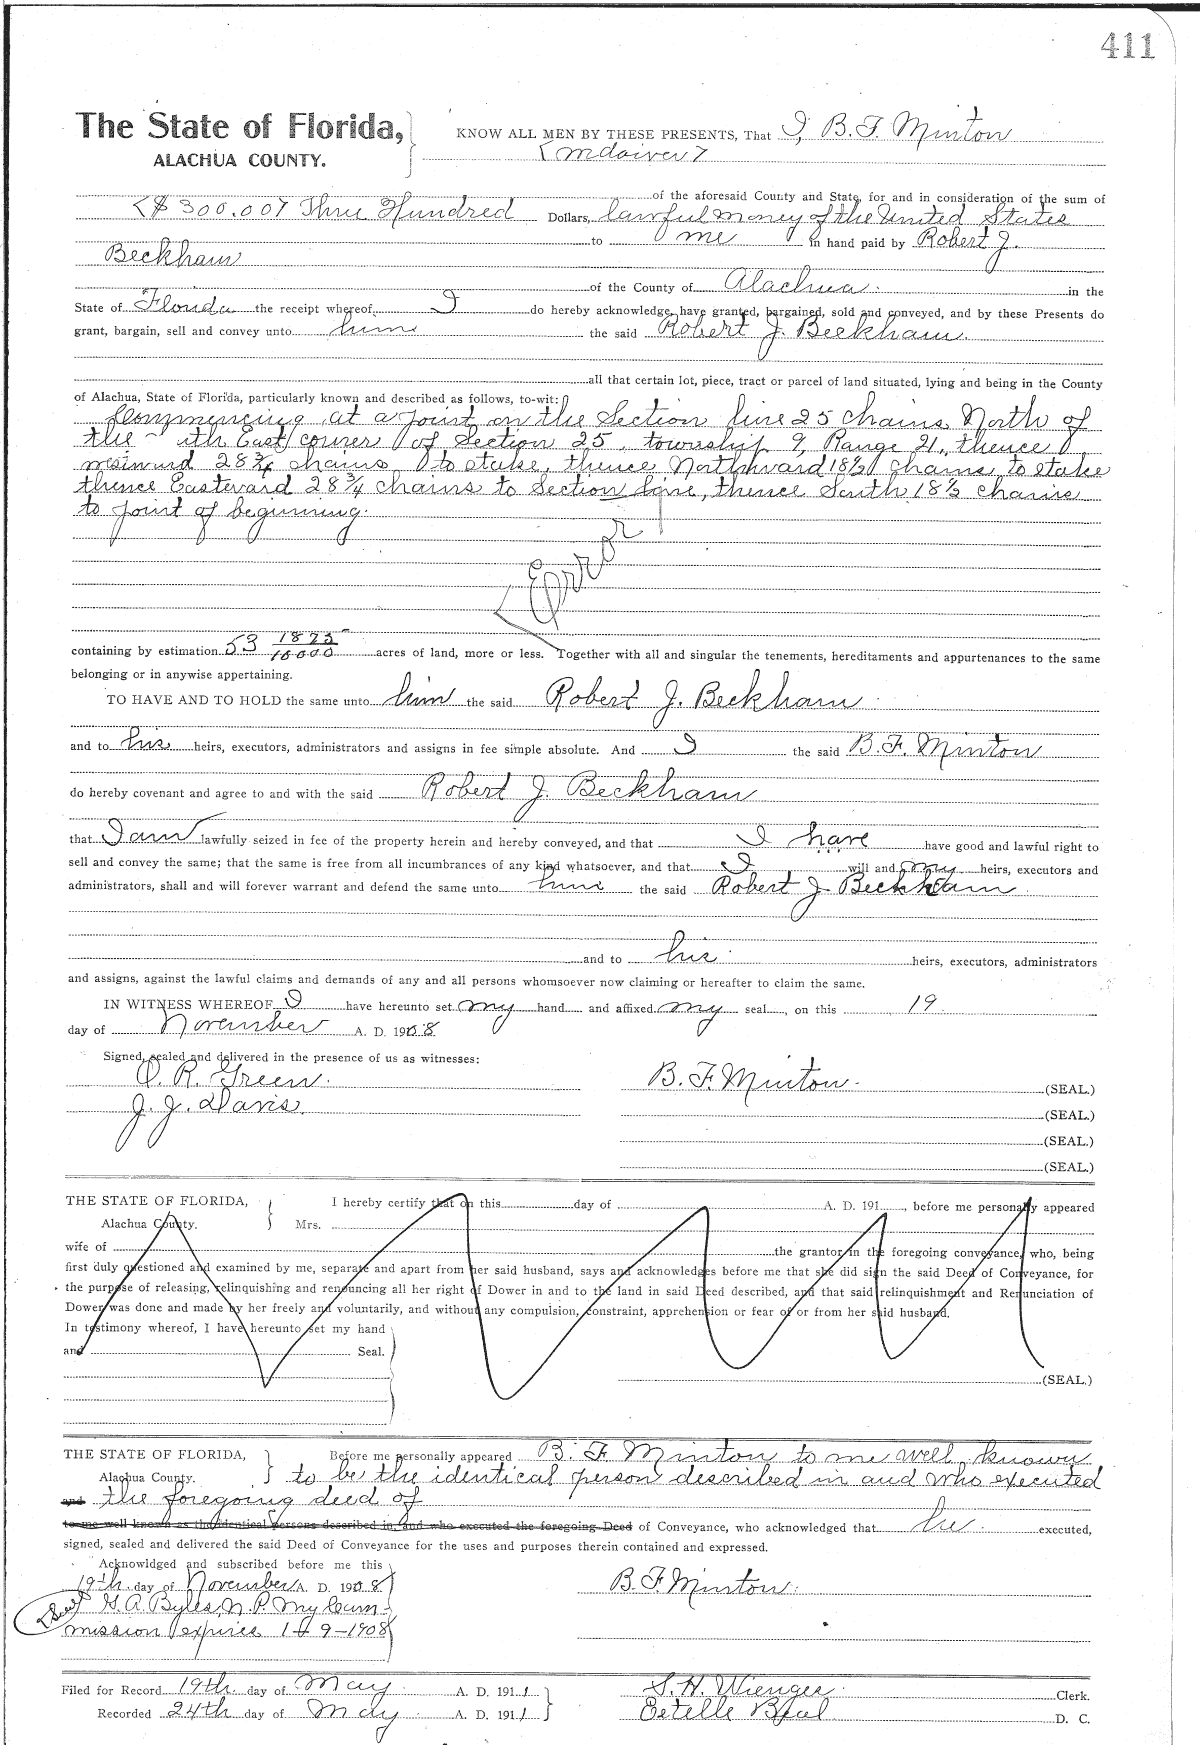 411
The State of Florida,
ALACHUA COUNTY.
KNOW ALL MEN BY THESE PRESENTS, That I, B. F. Minton
of the aforesaid County and State, for and in consideration of the sum of
<$300.00> Three Hundred Dollars, lawful money of the United States
to me in hand paid by Robert J.
Beckham
of the County of Alachua in the
State of Florida the receipt whereof I do hereby acknowledge, have granted, bargained, sold and conveyed, and by these Presents do
grant, bargain, sell and convey unto him the said Robert J. Beckham.
all that certain lot, piece, tract or parcel of land situated, lying and being in the County
of Alachua, State of Florida, particularly known and described as follows, to-wit:
Commencing at a point on the Section line 25 chains North of
the East corner of Section 25, township 9, Range 21, thence
28 3/4 chains to stake, thence Northward 18 1/2 chains to stake
thence Eastward 28 3/4 chains to Section line, thence South 18 1/2 chains
to point of beginning.
Error
containing by estimation 53 1825/10000 acres of land, more or less. Together with all and singular the tenements, hereditaments and appurtenances to the same
belonging or in anywise appertaining.
TO HAVE AND TO HOLD the same unto him the said Robert J. Beckham
and to his heirs, executors, administrators and assigns in fee simple absolute. And I the said B. F. Minton
do hereby covenant and agree to and with the said Robert J. Beckham
that I am lawfully seized in fee of the property herein and hereby conveyed, and that I have have good and lawful right to
sell and convey the same; that the same is free from all incumbrances of any kind whatsoever, and that I will and my heirs, executors and
administrators, shall and will forever warrant and defend the same unto him the said Robert J Beckham
and to his heirs, executors, administrators
and assigns, against the lawful claims and demands of any and all persons whomsoever now claiming or hereafter to claim the same.
IN WITNESS WHEREOF I have hereunto set my hand and affixed my seal, on this 19
day of November A. D. 1908
Signed, sealed and delivered in the presence of us as witnesses:
O. R. Green. B. F. Minton. (SEAL.)
J. J. Davis. (SEAL.)
(SEAL.)
(SEAL.)
THE STATE OF FLORIDA, I hereby certify that on this day of A. D. 191 , before me personally appeared
Alachua County. Mrs.
wife of the grantor in the foregoing conveyance, who, being
first duly questioned and examined by me, separate and apart from her said husband, says and acknowledges before me that she did sign the said Deed of Conveyance, for
the purpose of releasing, relinquishing and renouncing all her right of Dower in and to the land in said Deed described, and that said relinquishment and Renunciation of
Dower was done and made by her freely and voluntarily, and without any compulsion, constraint, apprehension or fear of or from her said husband.
In testimony whereof, I have hereunto set my hand
and Seal.
(SEAL.)
THE STATE OF FLORIDA, Before me personally appeared B. F. Minton to me well known
Alachua County. to be the identical person described in and who executed
and the foregoing deed of
to me well known as the identical persons described in, and who executed the foregoing Deed of Conveyance, who acknowledged that he executed,
signed, sealed and delivered the said Deed of Conveyance for the uses and purposes therein contained and expressed.
Acknowldged and subscribed before me this
19th day of November A. D. 1908 B. F. Minton.
<Seal> G. A. Byles, N. P. My Com-
mission expires 9-1908
Filed for Record 19th day of May A. D. 1911 S. H. Wienges Clerk.
Recorded 24th day of May A. D. 1911 Estelle D. C.